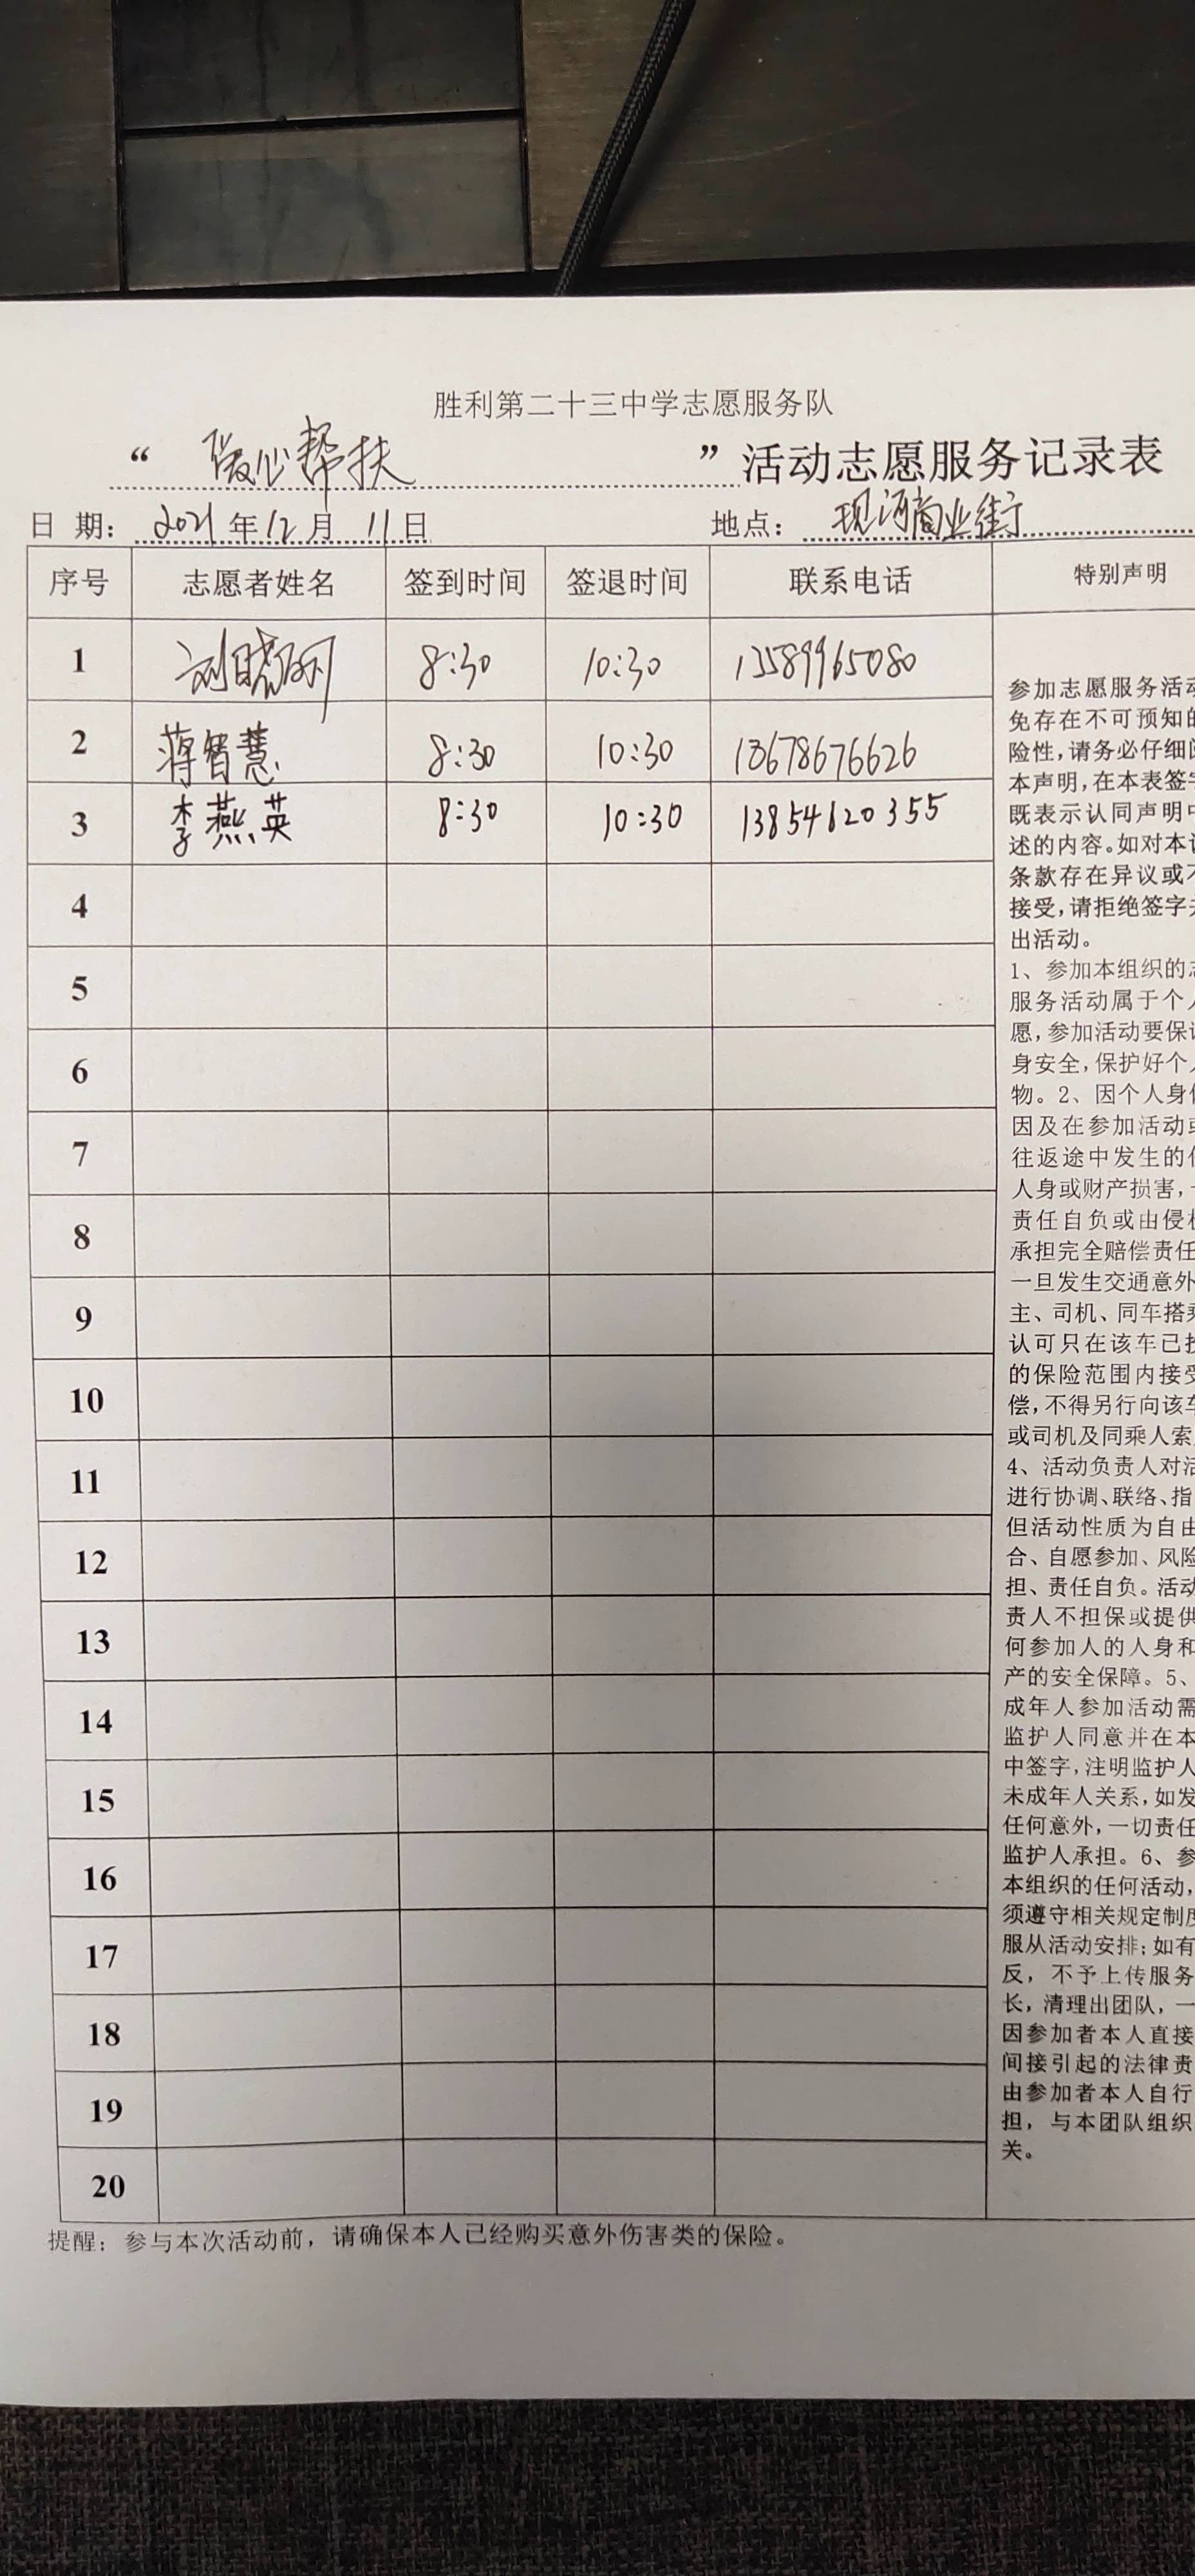 胜利第二十三中学志愿服务队
“ 暖心帮扶 ”活动志愿服务记录表
日 期: 2021年12月 11日 地点: 现河商业街
序号 志愿者姓名 签到时间 签退时间 联系电话 特别声明
1 刘晓丽 8:30 10:30 13589965080
2 蒋智慧 8:30 10:30 18678676626
3 李燕英 8:30 10:30 13854620355
4
5
6
7
8
9
10
11
12
13
14
15
16
17
18
19
20
参加志愿服务活动
免存在不可预知的
险性,请务必仔细阅
本声明,在本表签字
既表示认同声明中
述的内容。如对本
条款存在异议或不
接受,请拒绝签字并
出活动。
1、参加本组织的志
服务活动属于个人
愿,参加活动要保证
身安全,保护好个人
物。2、因个人身体
因及在参加活动或
往返途中发生的任
人身或财产损害,一
责任自负或由侵权
承担完全赔偿责任
一旦发生交通意外
主、司机、同车搭乘
认可只在该车已投
的保险范围内接受
偿,不得另行向该车
或司机及同乘人索
4、活动负责人对活
进行协调、联络、指
但活动性质为自由
合、自愿参加、风险
担、责任自负。活动
责人不担保或提供
何参加人的人身和
产的安全保障。5、
成年人参加活动需
监护人同意并在本
中签字,注明监护人
未成年人关系,如发
任何意外,一切责任
监护人承担。6、参
本组织的任何活动,
须遵守相关规定制度
服从活动安排;如有
反, 不予上传服务
长,清理出团队,一
因参加者本人直接
间接引起的法律责
由参加者本人自行
担, 与本团队组织
关。
提醒: 参与本次活动前, 请确保本人已经购买意外伤害类的保险。